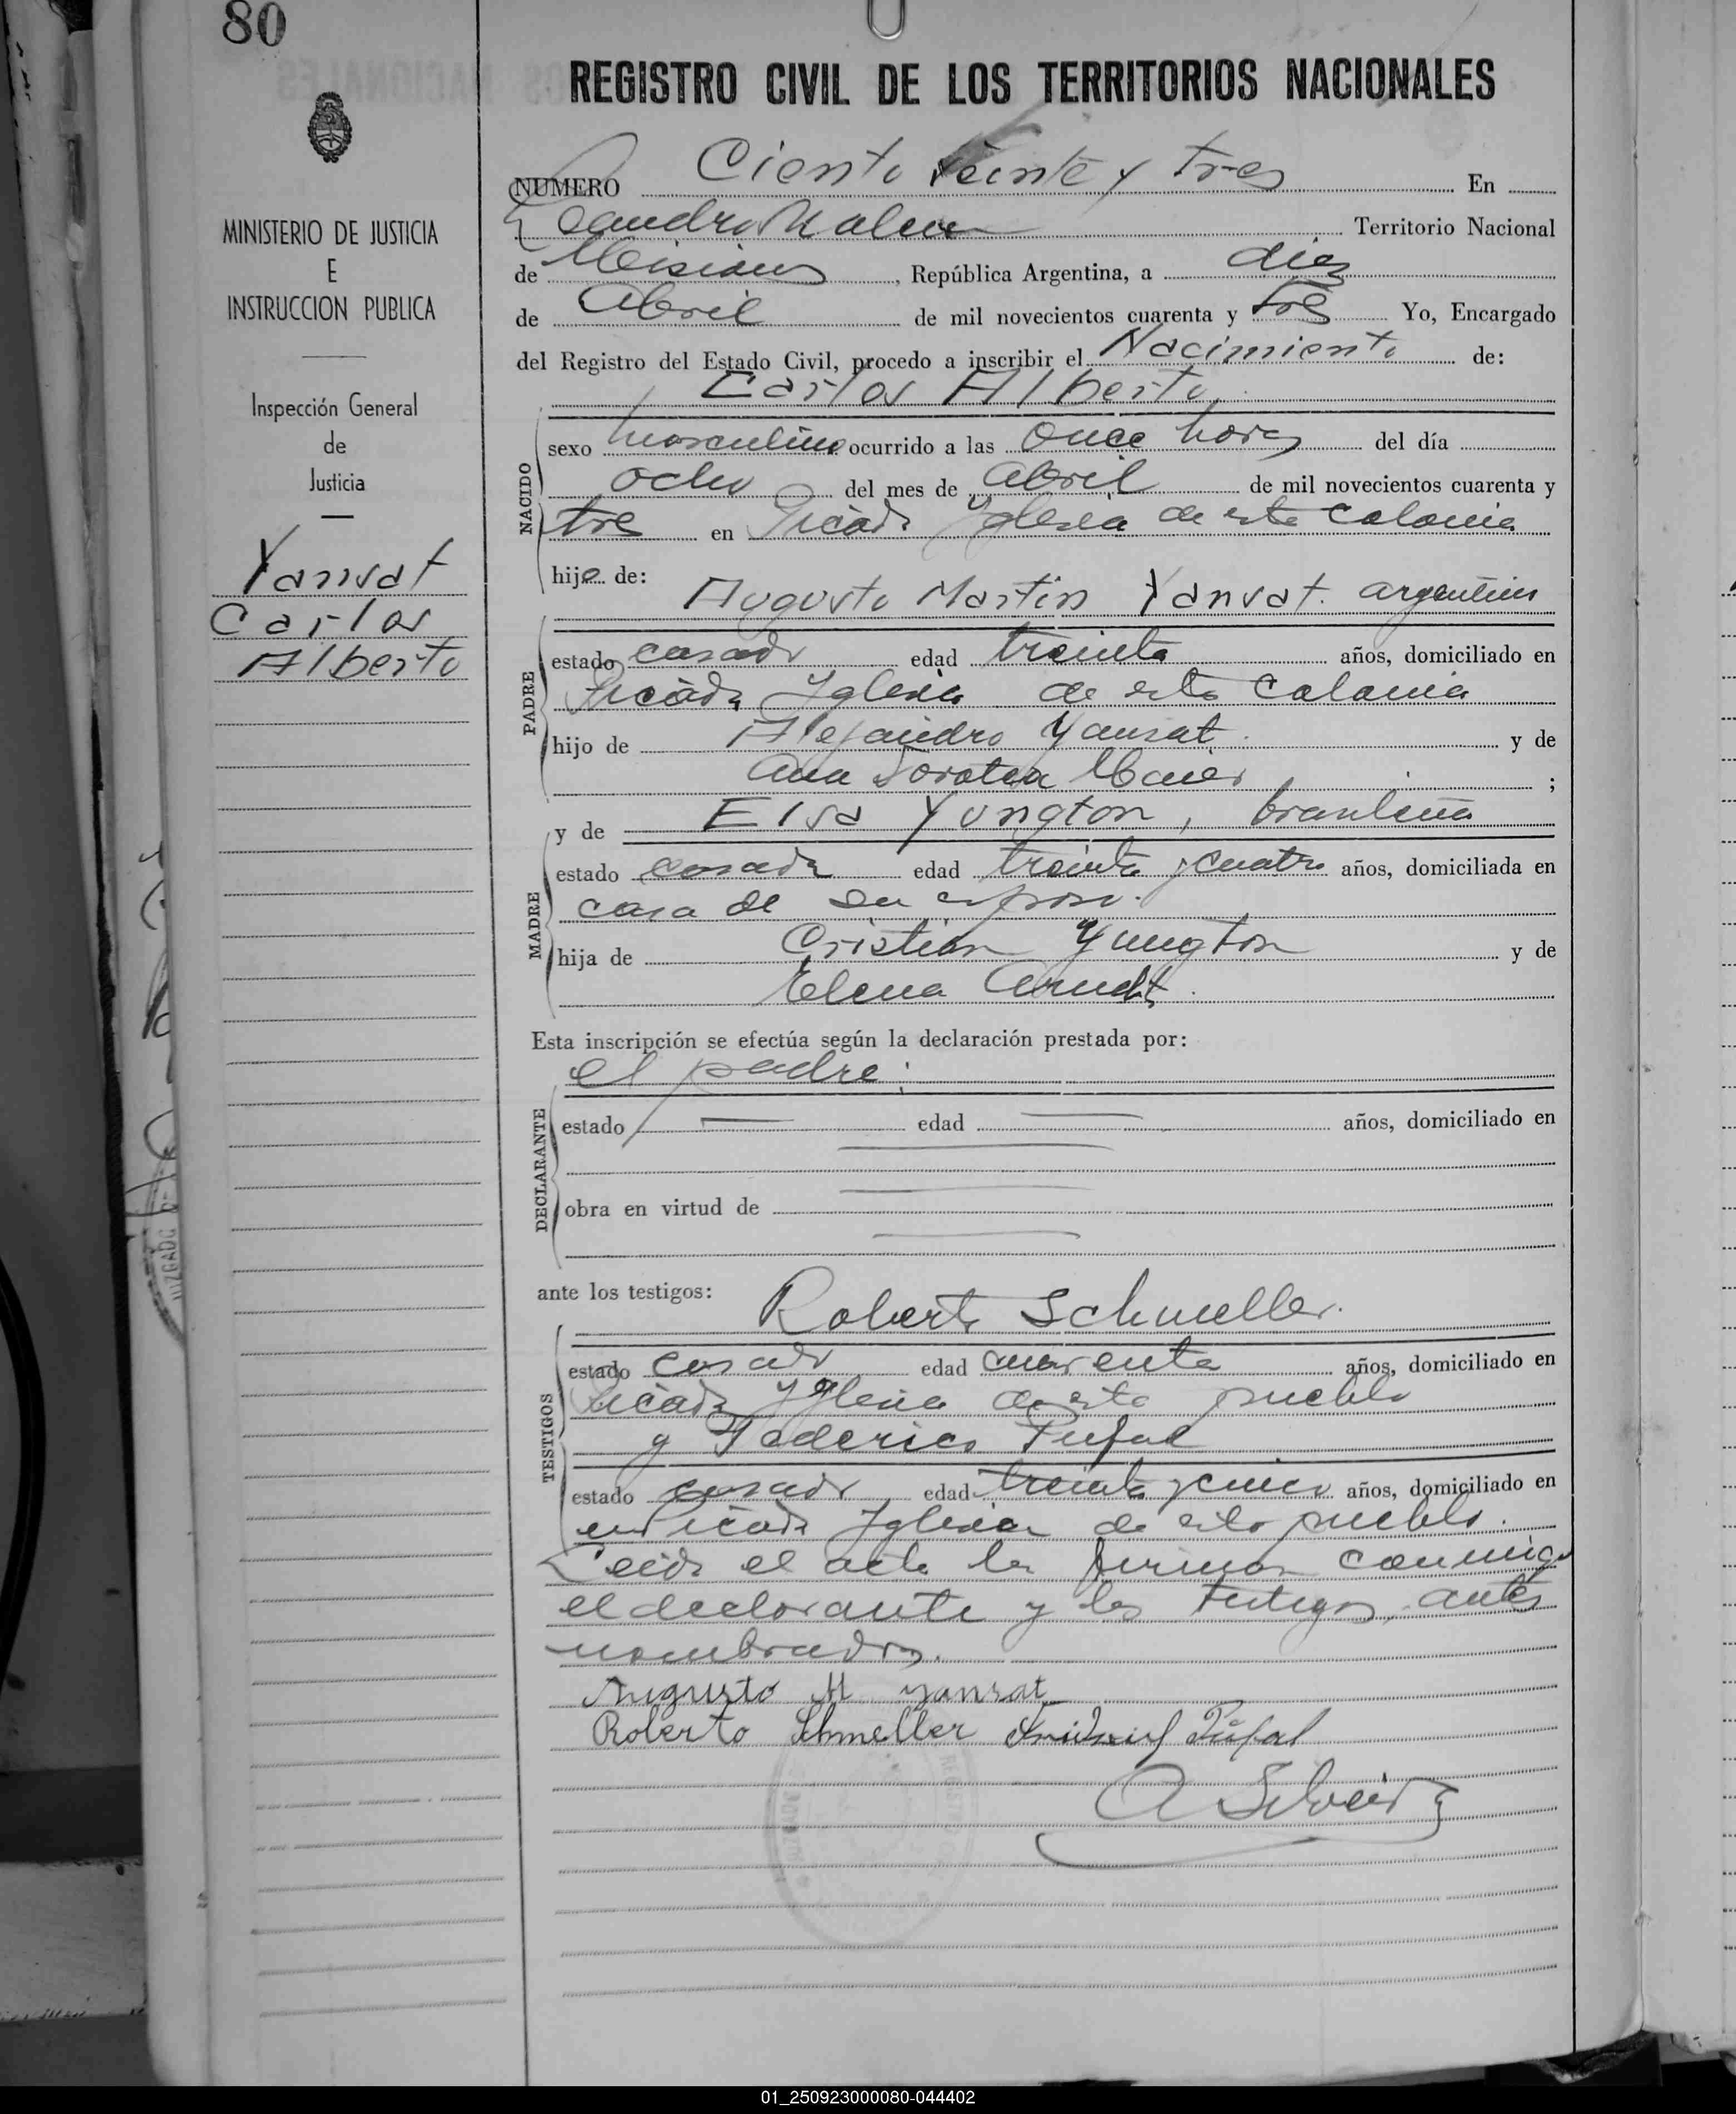 80
REGISTRO CIVIL DE LOS TERRITORIOS NACIONALES
MINISTERIO DE JUSTICIA
E
INSTRUCCION PUBLICA
Inspección General
de
Justicia
Yansat
Carlos
Alberto
NUMERO Ciento veinte y tres En
Leandro N Alem Territorio Nacional
de Misiones, República Argentina, a diez
de Abril de mil novecientos cuarenta y tres Yo, Encargado
del Registro del Estado Civil, procedo a inscribir el Nacimiento de:
Carlos Alberto
NACIDO
sexo masculino ocurrido a las once horas del día
ocho del mes de abril de mil novecientos cuarenta y
tres en Picada Yglesia de esta colonia
hijo de:
Augusto Martin Yansat. argentino
PADRE
estado casado edad treinta años, domiciliado en
Picada Yglesia de esta colonia
hijo de Alejandro Yansat y de
Ana Dorotea ;
y de Elsa Yungton, brasileña
MADRE
estado casada edad treinta y cuatro años, domiciliada en
casa de su esposo.
hija de Cristian Yungton y de
Elena Arndt.
Esta inscripción se efectúa según la declaración prestada por:
el padre:
DECLARANTE
estado edad años, domiciliado en
obra en virtud de
ante los testigos:
Roberto Schmeller.
TESTIGOS
estado casado edad cuarenta años, domiciliado en
Picada Yglesia de este pueblo
y Federico Pufal
estado casado edad treinta y cinco años, domiciliado en
en Picada Yglesia de este pueblo.
Leida el acta la firman conmigo
el declarante y los testigos antes
nombrados.
Augusto M Yansat
Roberto Schmeller Pufal
01_250923000080-044402